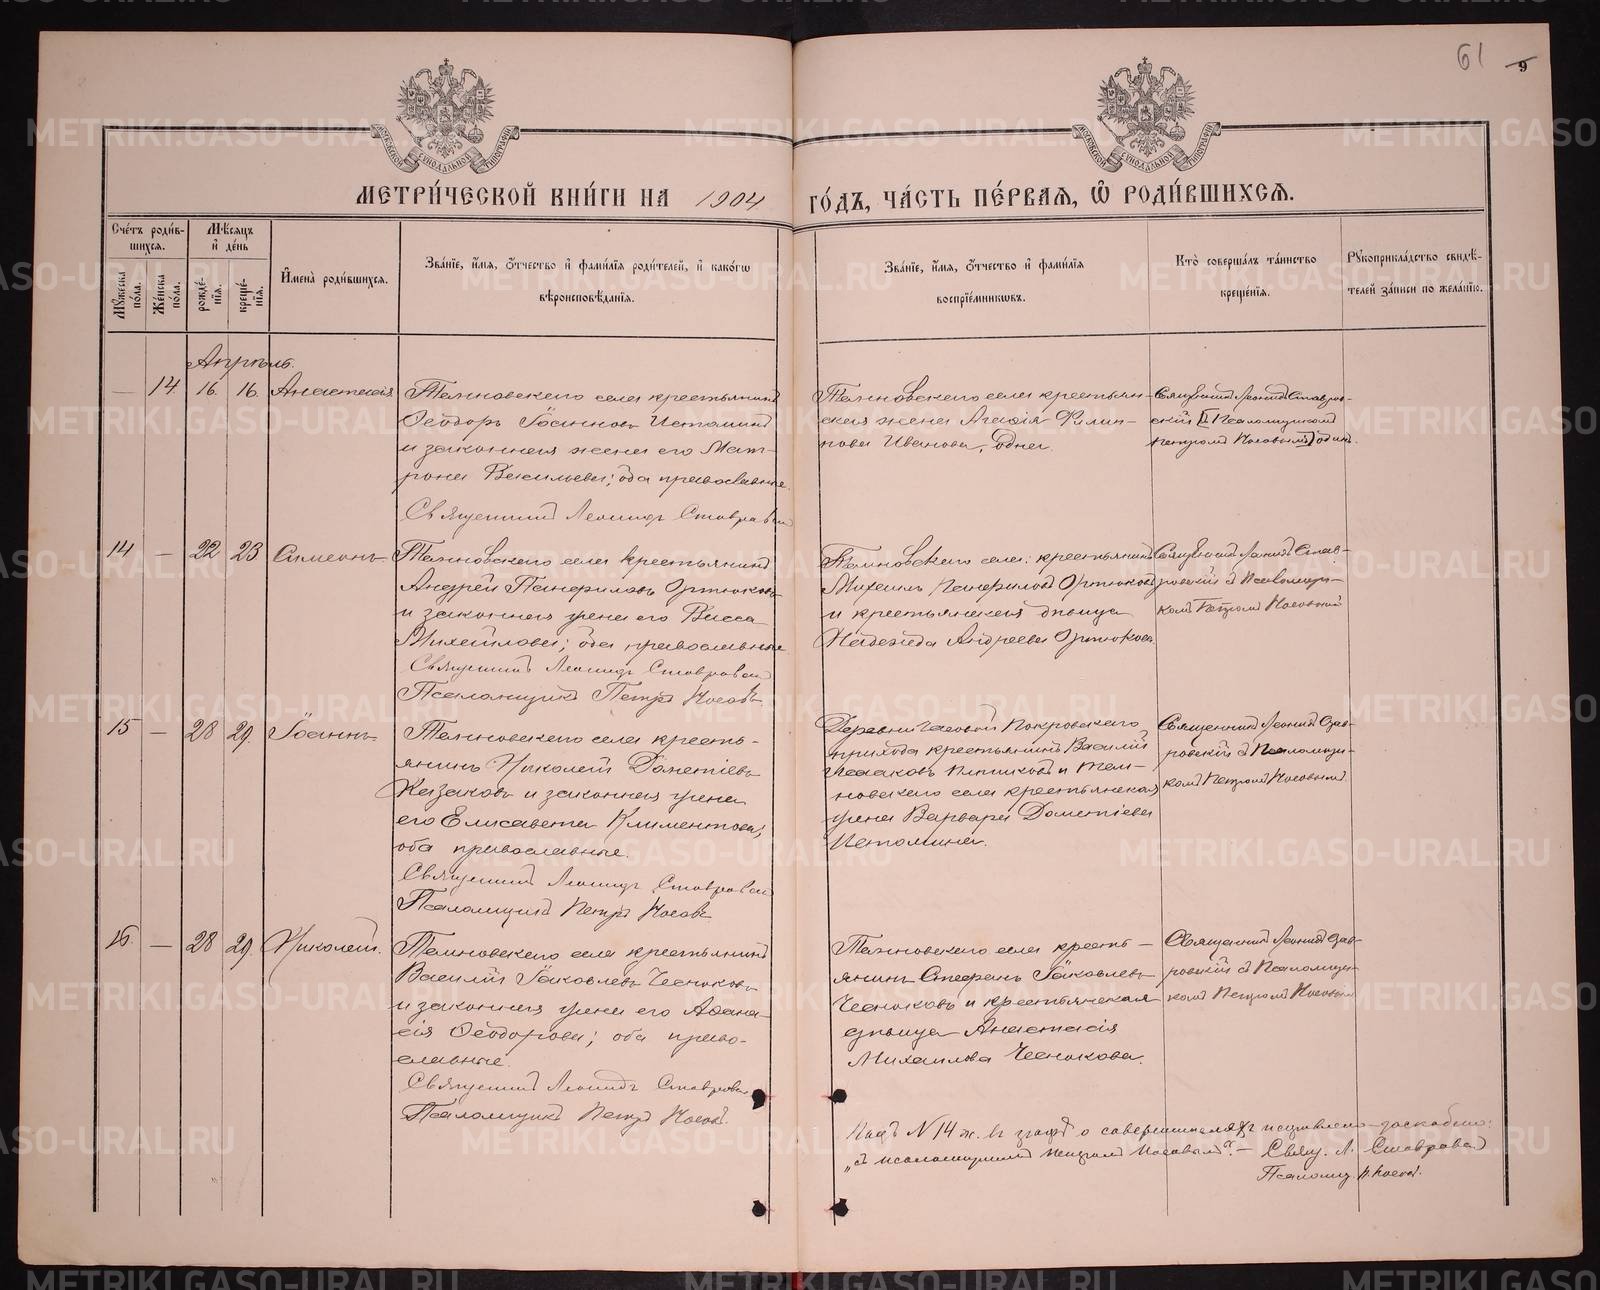 61 9
МЕТРИ́ЧЕСКОЙ КНИ́ГИ НА 1904 ГО́ДЪ, ЧА́СТЬ ПЕ́РВАЯ, Ѡ҆ РОДИ́ВШИХСЯ.
Сче́тъ роди́в-
шихся.
Мѣ́сяцъ
и҆ де́нь
Му́жеска по́ла.
Же́нска по́ла.
рожде́-
нїя.
креще́-
нїя.
И҆мена̀ роди́вшихся.
Зва́нїе, и҆́мя, о҆́тчество и҆ фами́лїя роди́телей, и҆ како́гѡ
вѣроисповѣ́данїя.
Зва́нїе, и҆́мя, о҆́тчество и҆ фами́лїя
воспрїе́мникѡвъ.
Кто̀ соверша́лъ та́инство
креще́нїя.
Рꙋкоприкла́дство свидѣ́-
телей за́писи по жела́нїю.
Апрѣль.
— 14 16. 16. Анастасія
село крестьянинъ
Ѳеодоръ Іоанновъ Истоминъ
и законная жена его Мат-
рона Васильева; оба православные.
Священникъ Леонидъ Ставровскій
села крестьян-
ская жена Агафія Филип-
пова Иванова, одна.
Священникъ Леонидъ Ставров-
скій [съ Псаломщикомъ
Петромъ Носовымъ] одинъ.
14 — 22 23 Симеонъ
села крестьянинъ
Андрей Панфиловъ
и законная жена его Васса
Михаилова; оба православные
Священникъ Леонидъ Ставровскій
Псаломщикъ Петръ Носовъ
села крестьянинъ
Михаилъ Панфиловъ
и крестьянская дѣвица
Надежда Андреева
Священникъ Леонидъ Став-
ровскій съ Псаломщи-
комъ Петромъ Носовымъ
15 — 28 29. Іоаннъ
села кресть-
янинъ Николай Дометіевъ
Казаковъ и законная жена
его Елисавета Климентова,
оба православные.
Священникъ Леонидъ Ставровскій
Псаломщикъ Петръ Носовъ
Деревни Часовой Покровскаго
прихода крестьянинъ Василій
Исааковъ
села крестьянская
жена Варвара Дометіева
Истомина.
Священникъ Леонидъ Став-
ровскій съ Псаломщи-
комъ Петромъ Носовымъ
16. — 28 29. Николай.
села крестьянинъ
Василій Іаковлевъ Чесноковъ
и законная жена его Аѳана-
сія Ѳеодорова; оба право-
славные.
Священникъ Леонидъ Ставровскій
Псаломщикъ Петръ Носовъ.
села кресть-
янинъ Стефанъ Іаковлевъ
Чесноковъ и крестьянская
дѣвица Анастасія
Михаилова Чеснокова.
Священникъ Леонидъ Став-
ровскій съ Псаломщи-
комъ Петромъ Носовымъ
Подъ N 14 ж. въ графѣ о совершителяхъ исправлено заскоблено:
„съ псаломщикомъ Петромъ Носовымъ“. — Свящ. Л. Ставровскій
Псаломщ. П. Носовъ.
METRIKI.GASO-URAL.RU